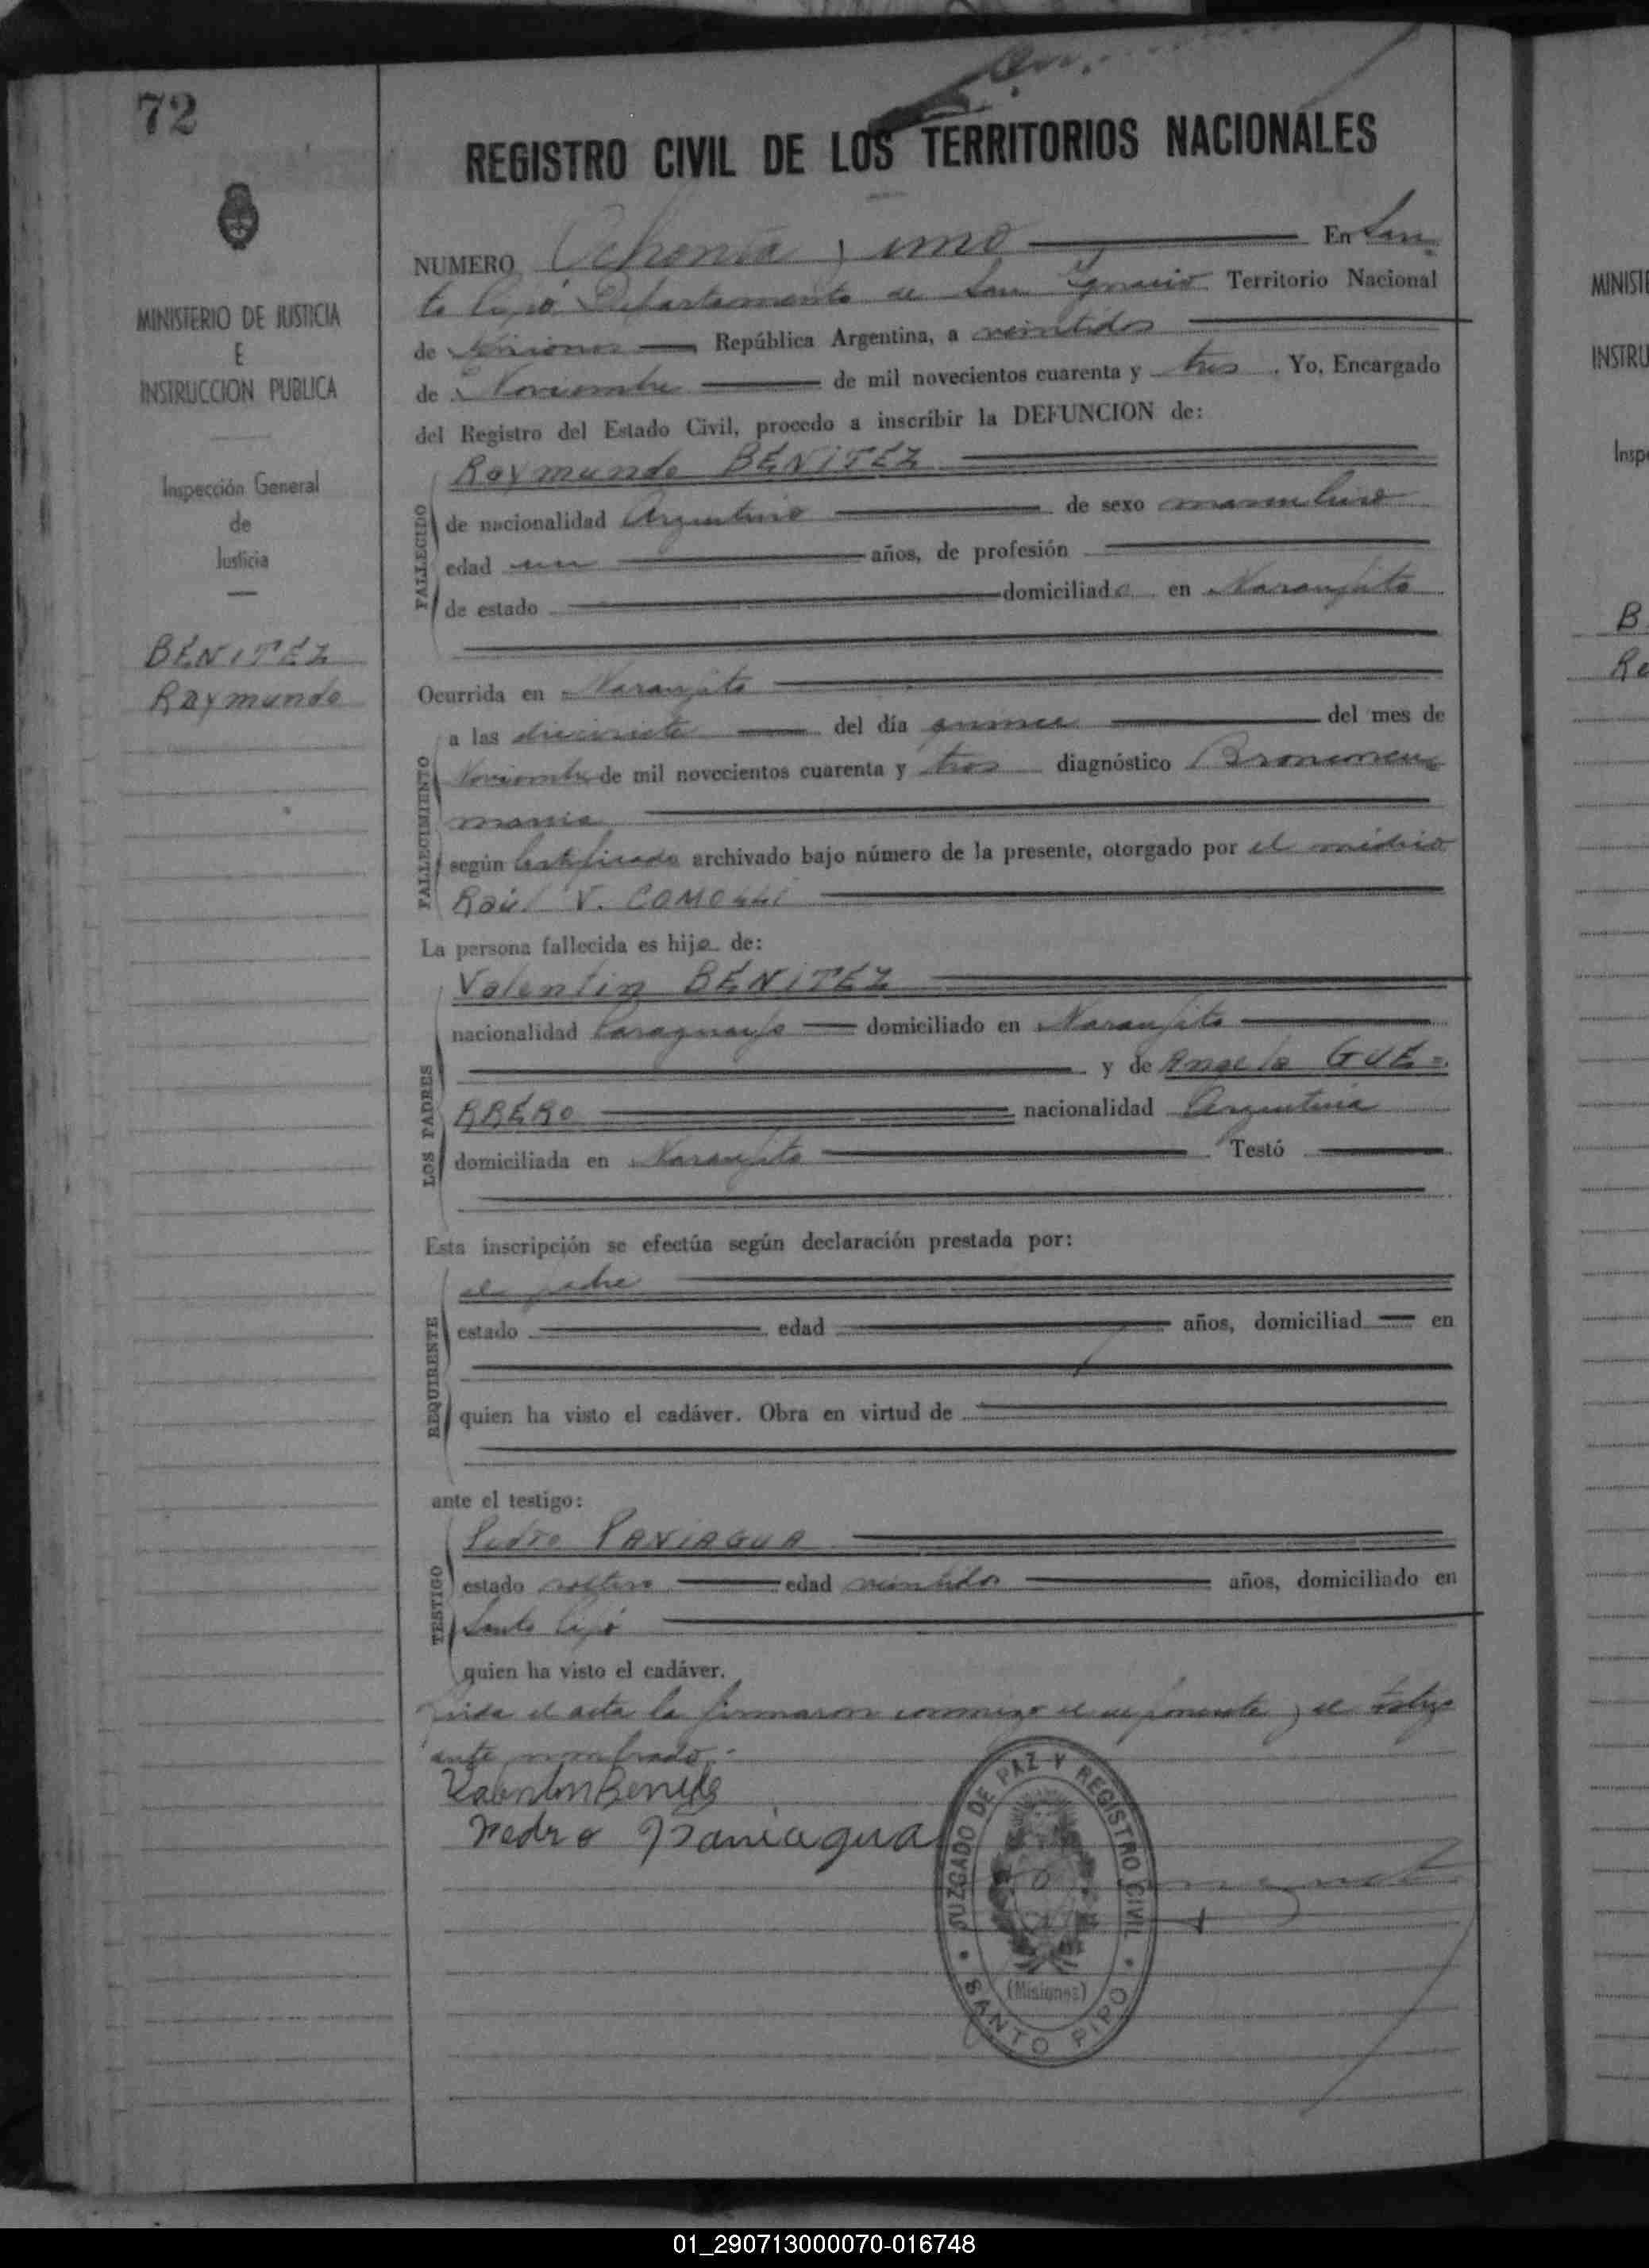 72
REGISTRO CIVIL DE LOS TERRITORIOS NACIONALES
MINISTERIO DE JUSTICIA
E
INSTRUCCION PUBLICA
Inspección General
de
Justicia
BÉNITÉZ
Raymundo
NUMERO Ochenta y uno En San
to Pipó Departamento de San Ignacio Territorio Nacional
de Misiones República Argentina, a veintidos
de Noviembre de mil novecientos cuarenta y tres . Yo, Encargado
del Registro del Estado Civil, procedo a inscribir la DEFUNCION de:
FALLECIDO
Raymundo BÉNITÉZ
de nacionalidad Argentino de sexo masculino
edad un años, de profesión
de estado domiciliado en Naranjito
Ocurrida en Naranjito
FALLECIMIENTO
a las diecisiete del día quince del mes de
Noviembre de mil novecientos cuarenta y tres diagnóstico Bronconeu
monia
según Certificado archivado bajo número de la presente, otorgado por el médico
Raúl V. COMOLLI
La persona fallecida es hijo de:
LOS PADRES
Valentin BÉNITÉZ
nacionalidad Paraguayo domiciliado en Naranjito
y de Angela GUÉ=
RRÉRO nacionalidad Argentina
domiciliada en Naranjito Testó
Esta inscripción se efectúa según declaración prestada por:
REQUIRENTE
el padre
estado edad años, domiciliad en
quien ha visto el cadáver. Obra en virtud de
ante el testigo:
TESTIGO
Pedro PANIAGUA
estado soltero edad veintidos años, domiciliado en
Santo Pipó
quien ha visto el cadáver.
Leida el acta la firmaron conmigo el exponente y el testigo
ante nombrado.-
Valentin Benites
Pedro Paniagua
JUZGADO DE PAZ Y REGISTRO CIVIL
(Misiones)
SANTO PIPO
MINISTE
INSTRU
Insp
B
Ra
01_290713000070-016748